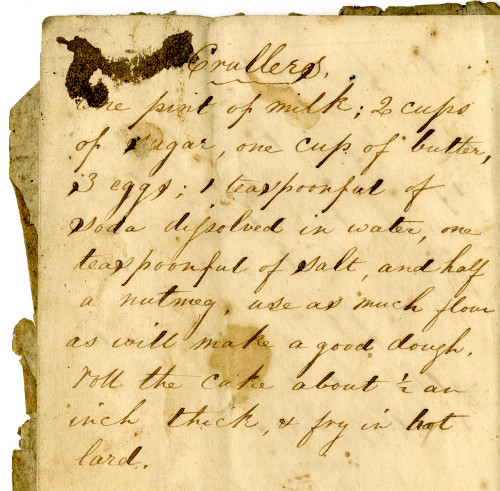 Crullers.
One pint of milk; 2 cups
of sugar, one cup of butter,
3 eggs; 1 teaspoonful of
soda dissolved in water, one
teaspoonful of salt, and half
a nutmeg, use as much flour
as will make a good dough.
roll the cake about ½ an
inch thick, & fry in hot
lard.